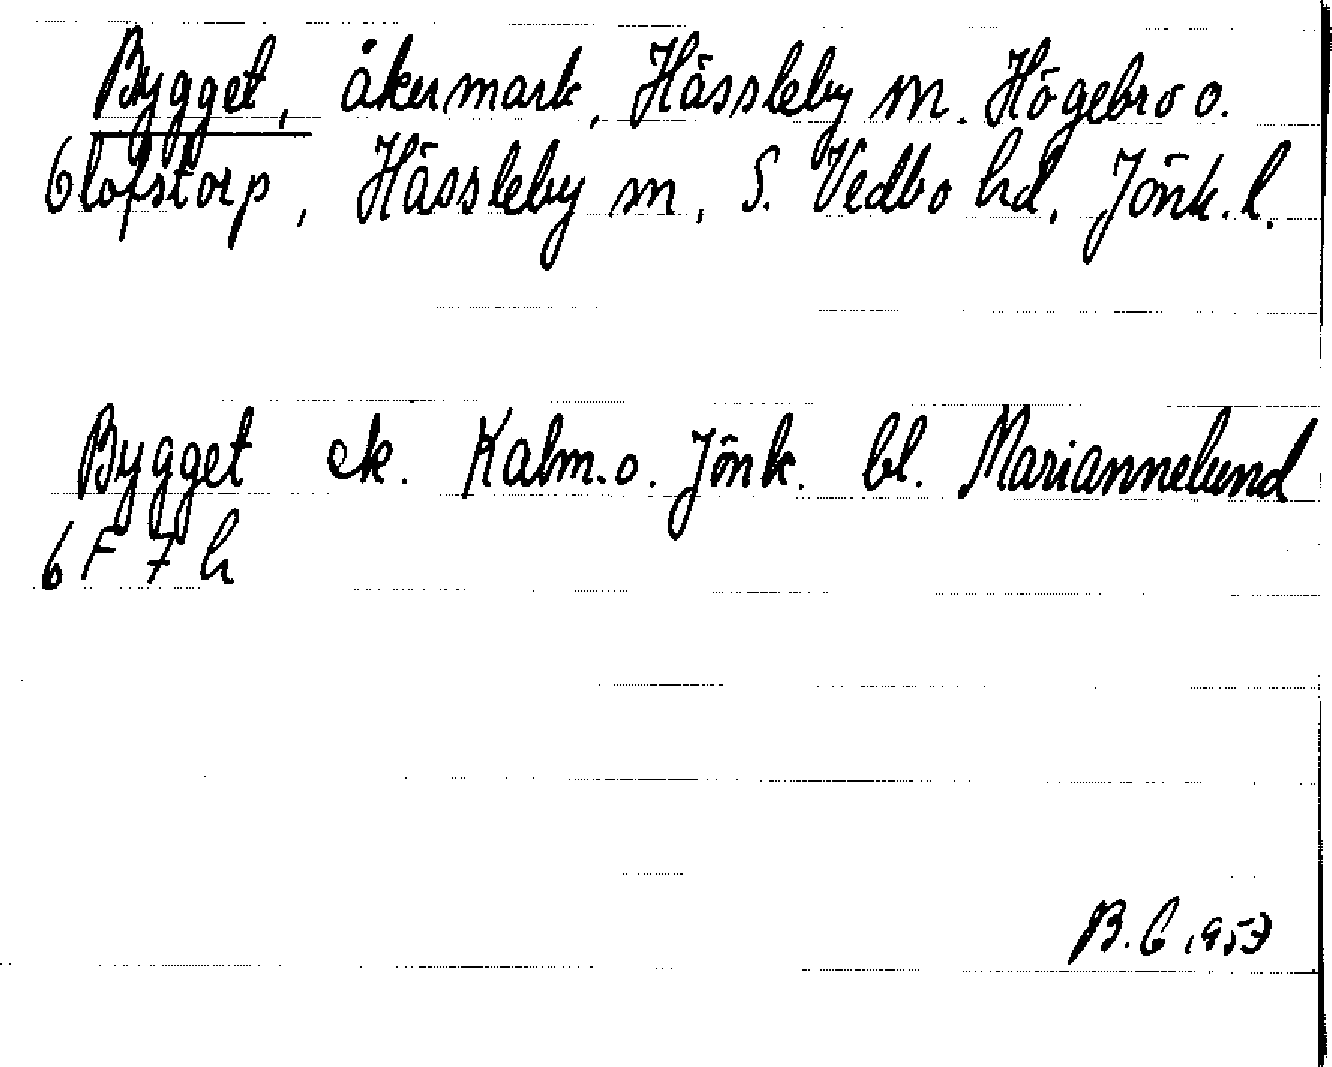 Bygget, åkermark, Hässleby sn. Högebro o.
Olofstorp, Hässleby sn, S. Vedbo hd. Jönk. l.
Bygget ek. Kalm. o. Jönk. bl. Mariannelund
6 F 7 h